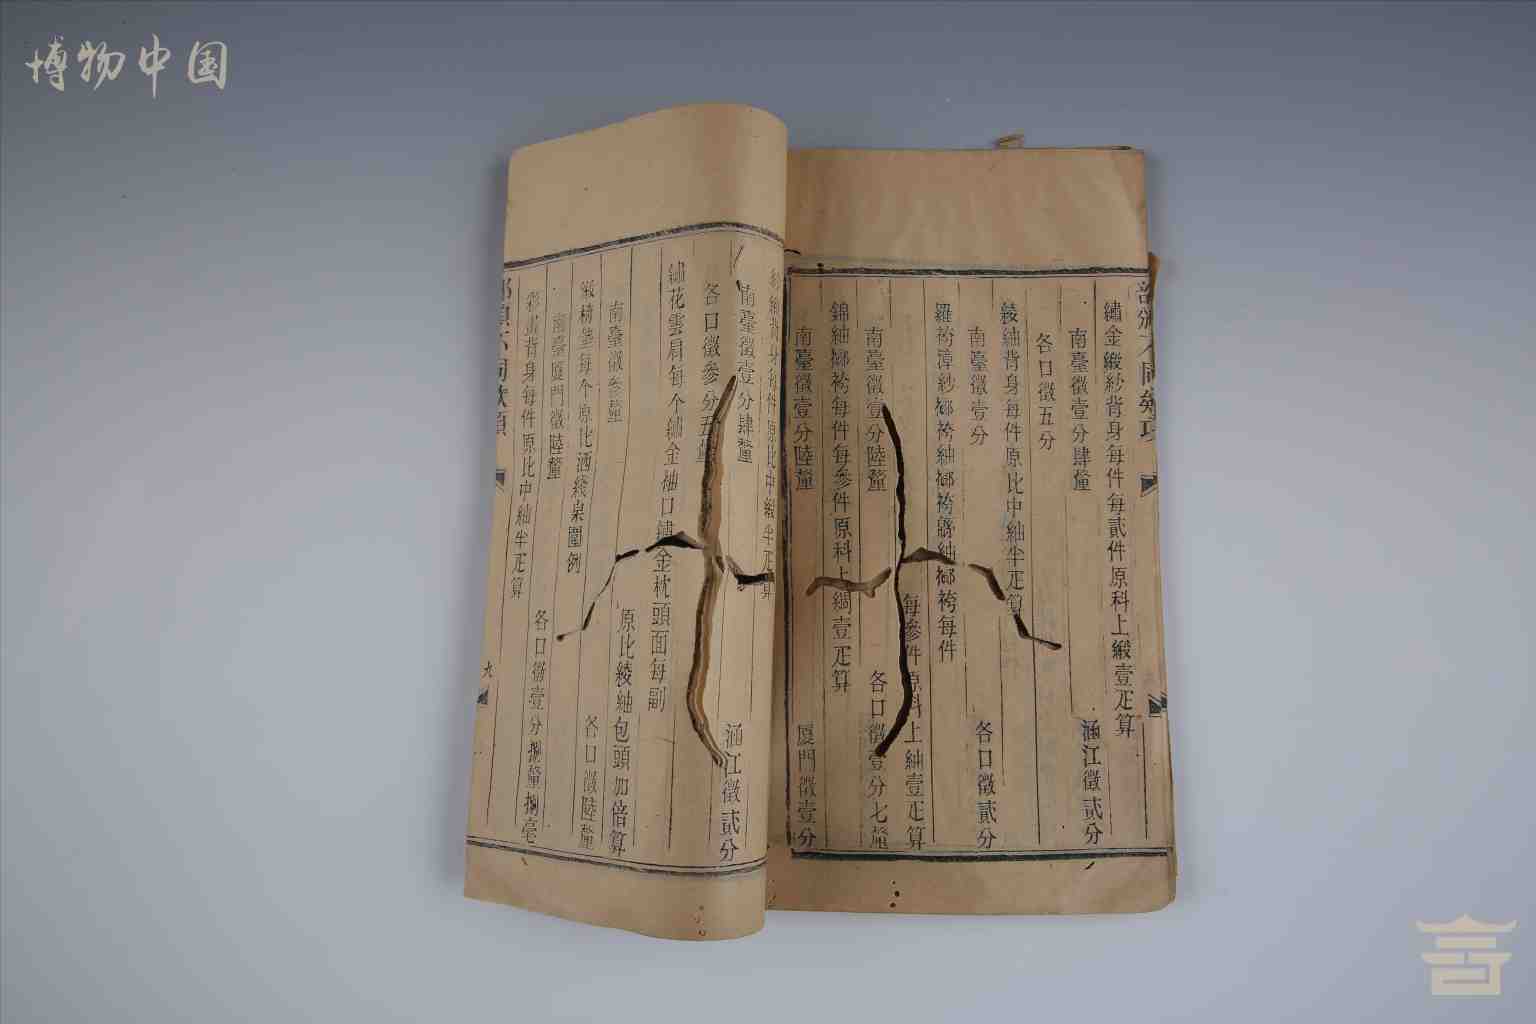 博物中国
繡金緞紗背身每件每貳件原科上緞壹疋算
南臺徵壹分肆釐
涵江徵貳分
各口徵五分
綾紬背身每件原比中紬半疋算
南臺徵壹分
各口徵貳分
每件
每參件原科上紬壹疋算
南臺徵壹分陸釐
各口徵壹分七釐
每件每參件原科上綢壹疋算
南臺徵壹分陸釐
厦門徵壹分
背身每件原比中緞半疋算
南臺徵壹分肆釐
涵江徵貳分
各口徵參分五釐
繡花雲肩每个繡金袖口繡金枕頭面每副
原比綾紬包頭加倍算
南臺徵叁釐
各口徵陸釐
緞椅墊每个原比洒綾桌圍例
南臺厦門徵陸釐
各口徵壹分捌釐捌毫
彩畫背身每件原比中紬半疋算